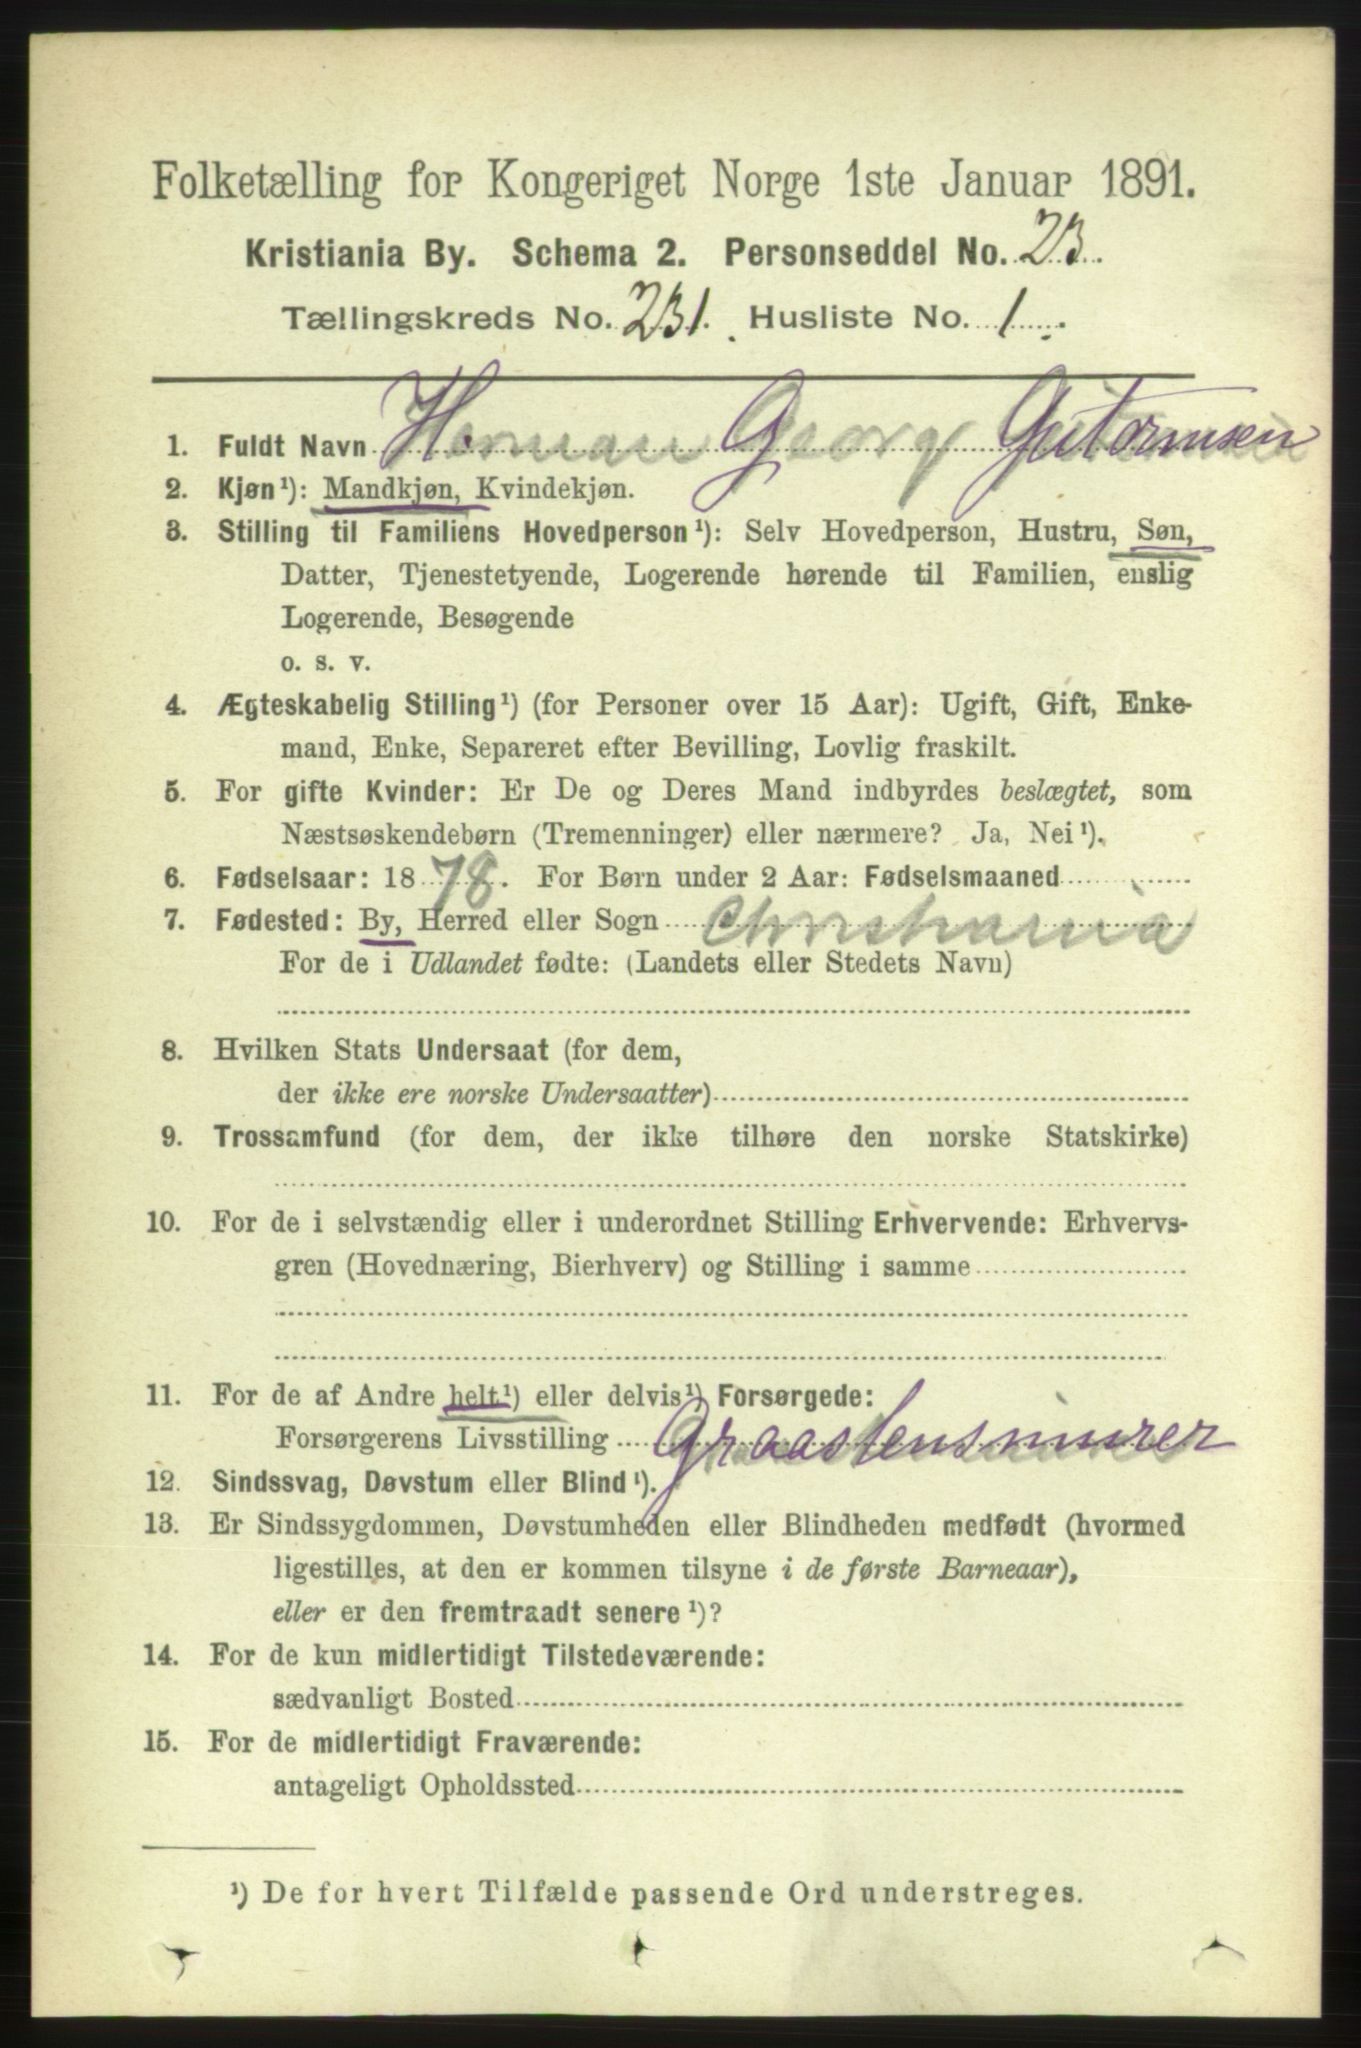 Folketælling for Kongeriget Norge 1ste Januar 1891.
Kristiania By. Schema 2. Personseddel No. 23.
Tællingskreds No. 231. Husliste No. 1.
1. Fuldt Navn Herman Georg Gutormsen
2. Kjøn¹): Mandkjøn, Kvindekjøn.
3. Stilling til Familiens Hovedperson¹): Selv Hovedperson, Hustru, Søn,
Datter, Tjenestetyende, Logerende hørende til Familien, enslig
Logerende, Besøgende
o. s. v.
4. Ægteskabelig Stilling¹) (for Personer over 15 Aar): Ugift, Gift, Enke-
mand, Enke, Separeret efter Bevilling, Lovlig fraskilt.
5. For gifte Kvinder: Er De og Deres Mand indbyrdes beslægtet, som
Næstsøskendebørn (Tremenninger) eller nærmere? Ja, Nei¹).
6. Fødselsaar: 1878. For Børn under 2 Aar: Fødselsmaaned
7. Fødested: By, Herred eller Sogn Christiania
For de i Udlandet fødte: (Landets eller Stedets Navn)
8. Hvilken Stats Undersaat (for dem,
der ikke ere norske Undersaatter)
9. Trossamfund (for dem, der ikke tilhøre den norske Statskirke)
10. For de i selvstændig eller i underordnet Stilling Erhvervende: Erhvervs-
gren (Hovednæring, Bierhverv) og Stilling i samme
11. For de af Andre helt¹) eller delvis¹) Forsørgede:
Forsørgerens Livsstilling Graastensmurer
12. Sindssvag, Døvstum eller Blind¹).
13. Er Sindssygdommen, Døvstumheden eller Blindheden medfødt (hvormed
ligestilles, at den er kommen tilsyne i de første Barneaar),
eller er den fremtraadt senere¹)?
14. For de kun midlertidigt Tilstedeværende:
sædvanligt Bosted
15. For de midlertidigt Fraværende:
antageligt Opholdssted
¹) De for hvert Tilfælde passende Ord understreges.